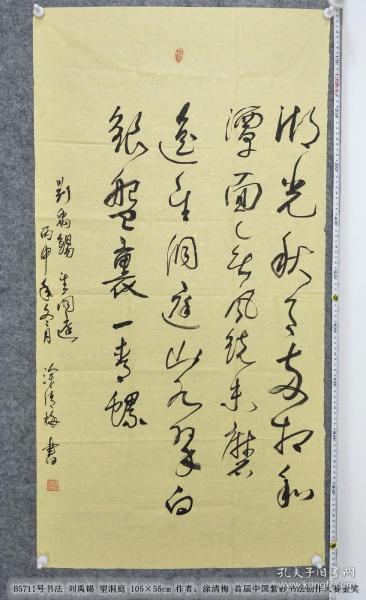 湖光秋月兩相和
潭面無風鏡未磨
遙望洞庭山水翠白
銀盤裏一青螺
劉禹錫 望洞庭
丙申年冬月 涂清梅 書
孔夫子旧书网
B5711号书法 刘禹锡 望洞庭 105×55cm 作者：涂清梅 首届中国紫砂书法创作大赛金奖